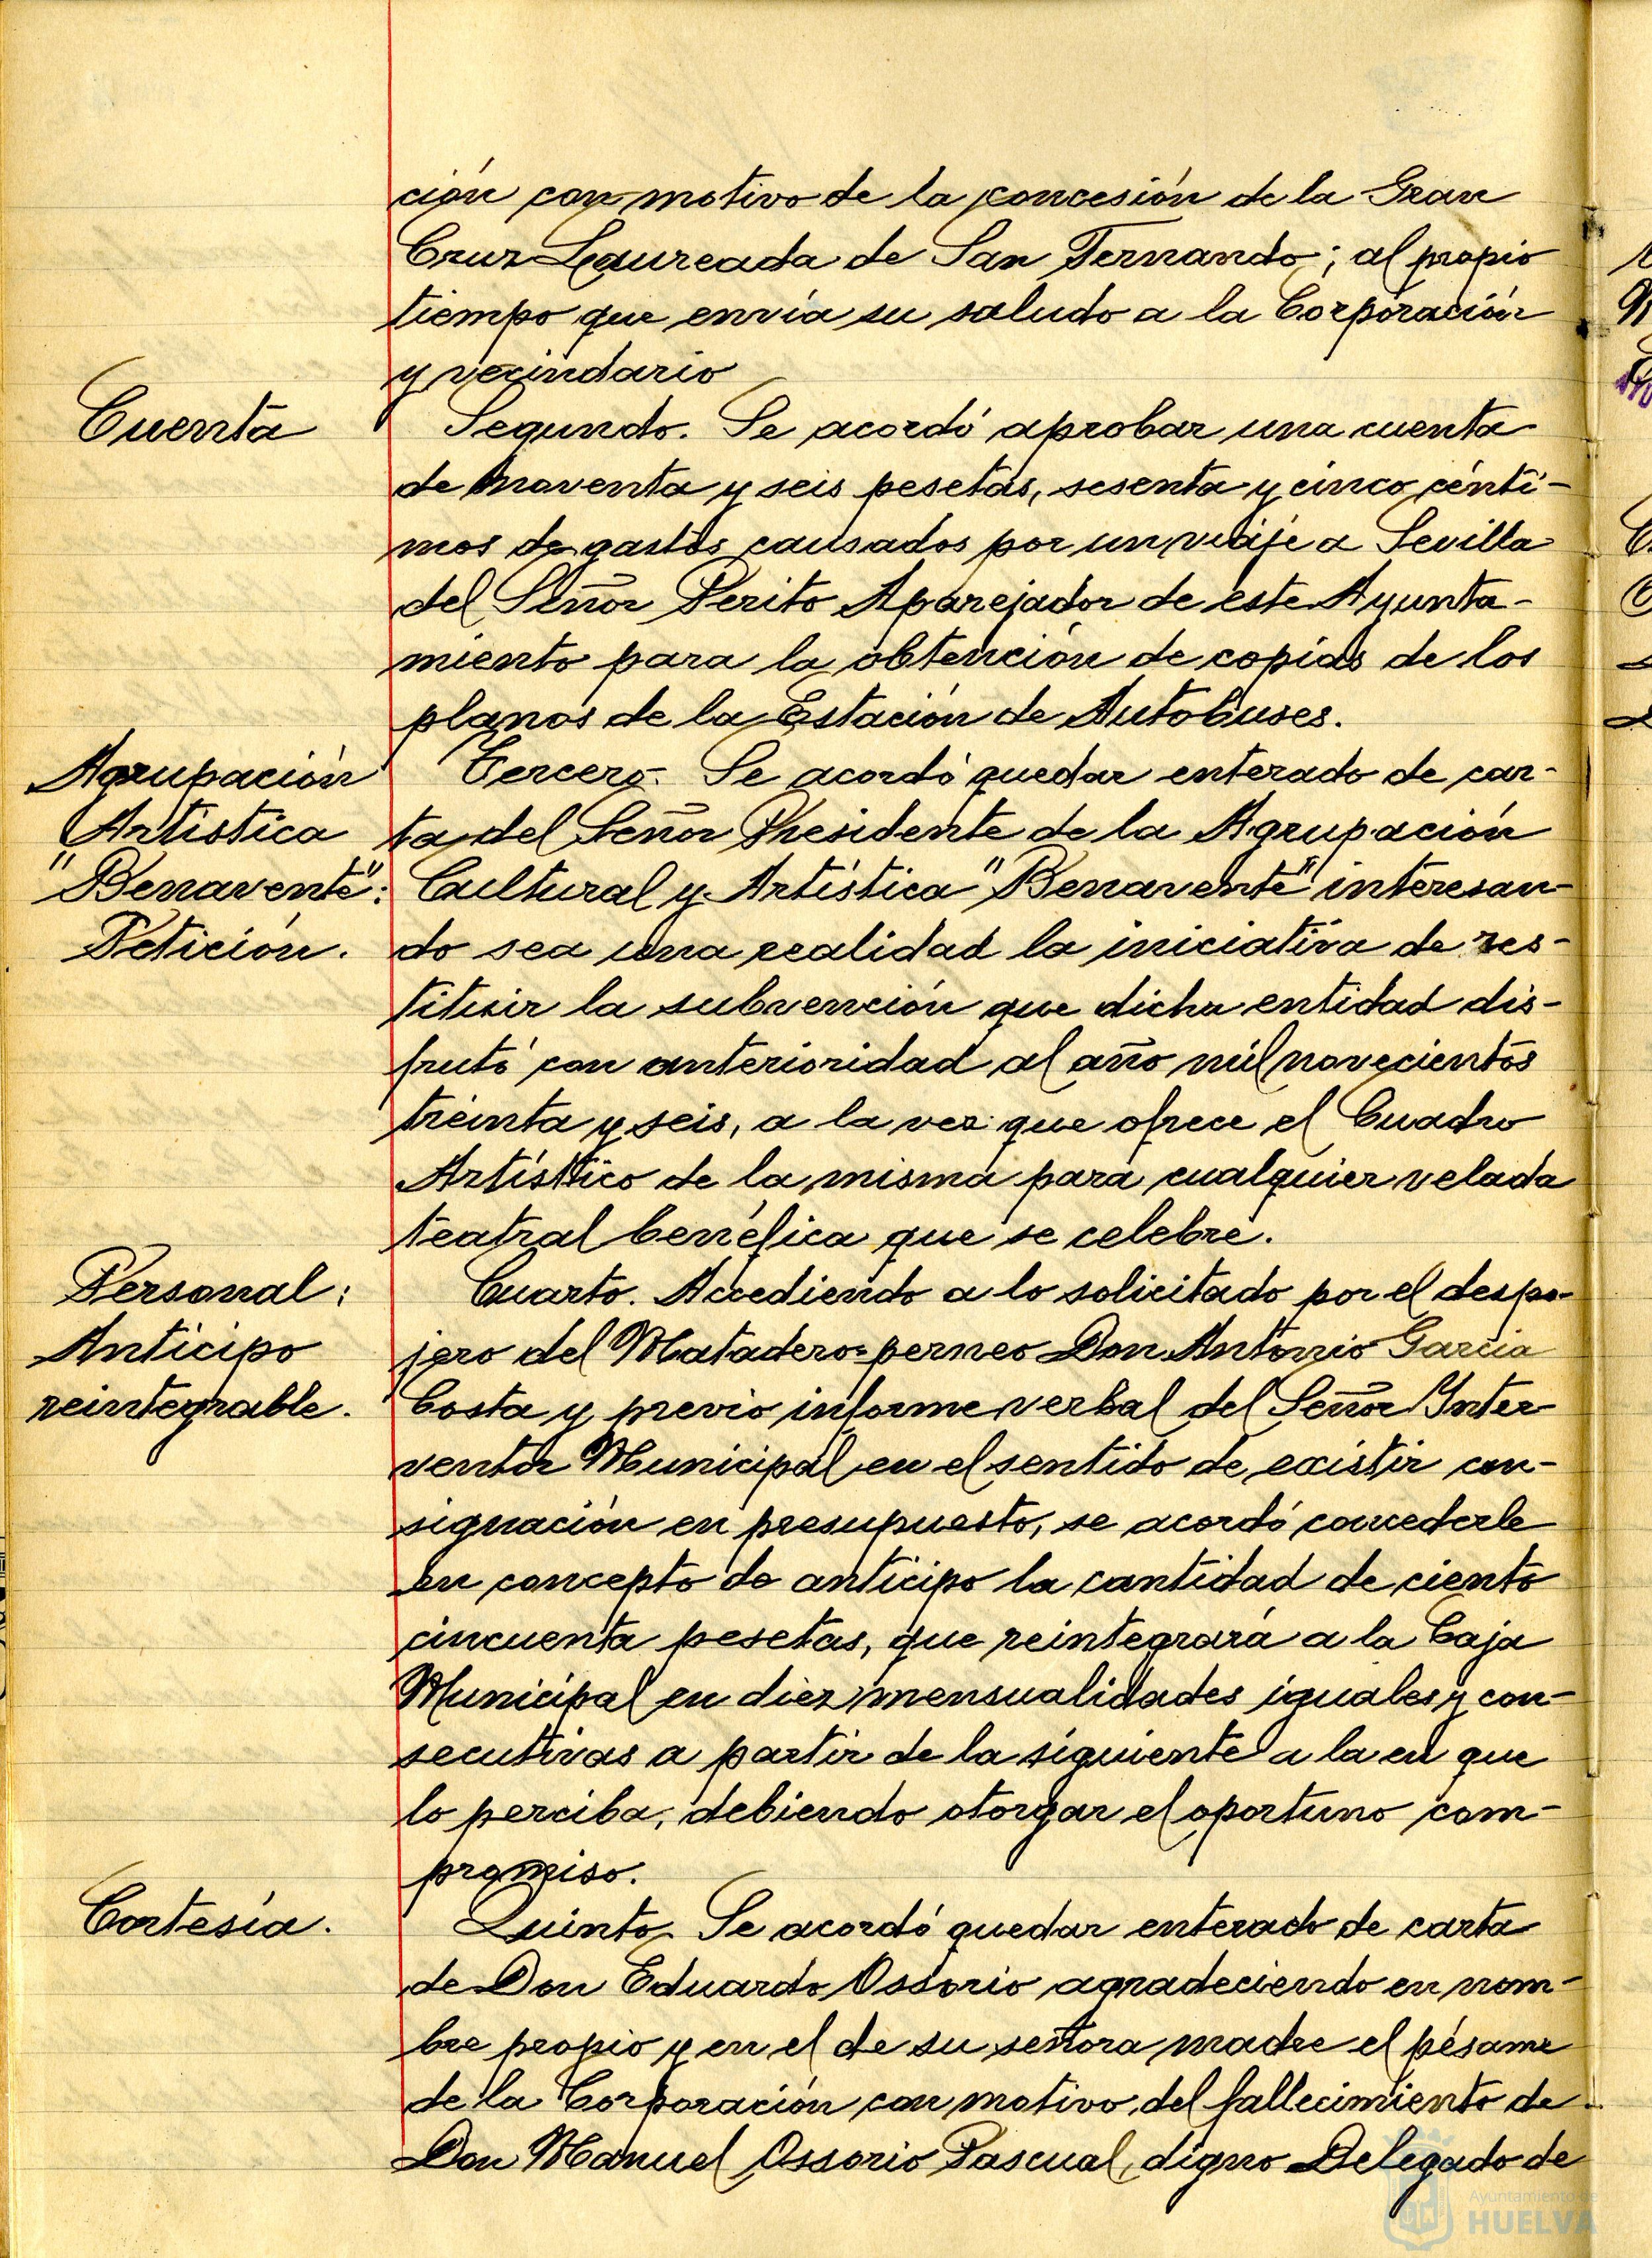 ción con motivo de la concesión de la Gran
Cruz Laureada de San Fernando; al propio
tiempo que envía su saludo a la Corporación
y vecindario
Cuenta
Segundo. Se acordó aprobar una cuenta
de noventa y seis pesetas, sesenta y cinco cénti-
mos de gastos causados por un viaje a Sevilla
del Señor Perito Aparejador de este Ayunta-
miento para la obtención de copias de los
planos de la Estación de Autobuses.
Agrupación
Artística
"Benavente":
Petición.
Tercero. Se acordó quedar enterado de car-
ta del Señor Presidente de la Agrupación
Cultural y Artística "Benavente" interesan-
do sea una realidad la iniciativa de res-
tituir la subvención que dicha entidad dis-
frutó con anterioridad al año mil novecientos
treinta y seis, a la vez que ofrece el Cuadro
Artístico de la misma para cualquier velada
teatral benéfica que se celebre.
Personal:
Anticipo
reintegrable.
Cuarto. Accediendo a lo solicitado por el despo-
jero del Matadero-perneo Don Antonio García
Costa y previo informe verbal del Señor Inter-
ventor Municipal en el sentido de existir con-
signación en presupuesto, se acordó concederle
en concepto de anticipo la cantidad de ciento
cincuenta pesetas, que reintegrará a la Caja
Municipal en diez mensualidades iguales y con-
secutivas a partir de la siguiente a la en que
lo perciba, debiendo otorgar el oportuno com-
promiso.
Cortesía.
Quinto. Se acordó quedar enterado de carta
de Don Eduardo Ossorio agradeciendo en nom-
bre propio y en el de su señora madre el pésame
de la Corporación con motivo del fallecimiento de
Don Manuel Ossorio Pascual, digno Delegado de
Ayuntamiento de
HUELVA